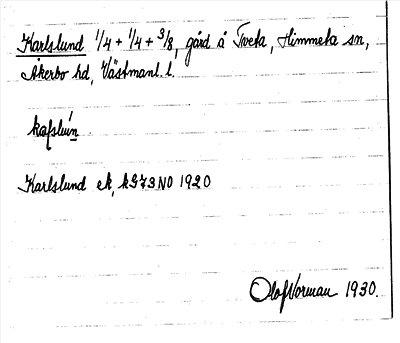 Karlslund 1/4 + 1/4 + 3/8, gård å Tveta, Himmeta sn,
Åkerbo hd, Västmanl. l.
Karlslund ek, kG73NO 1920
Olof Norman 1930.